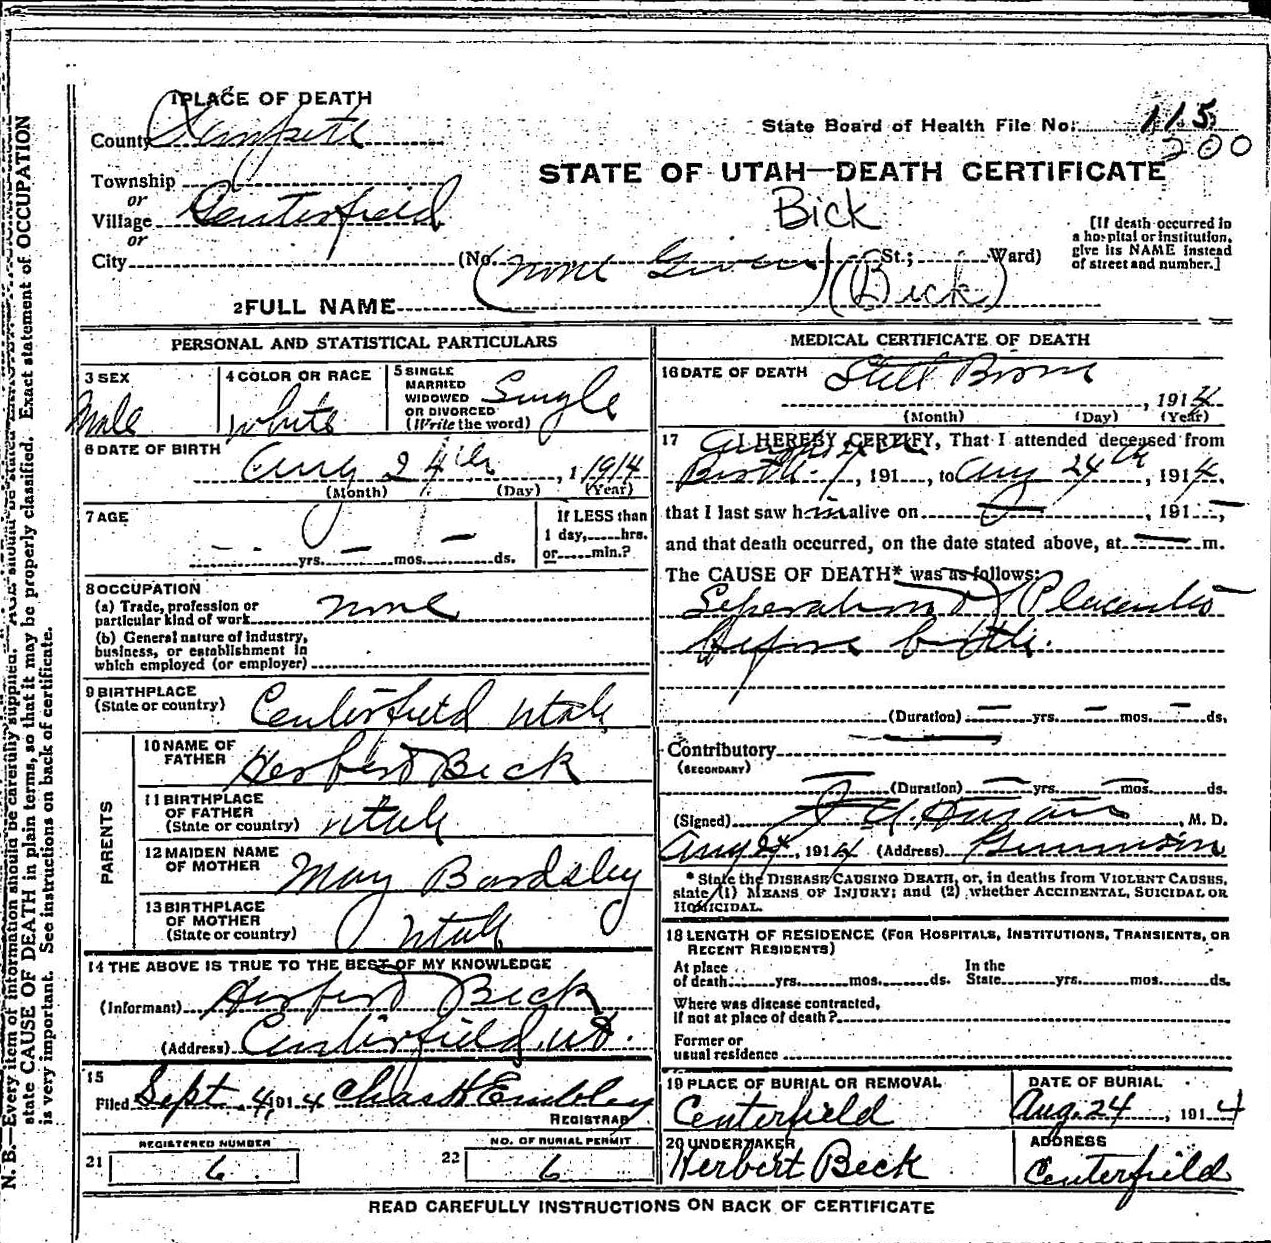 1 PLACE OF DEATH
County Sanpete
State Board of Health File No. 115
200
Township
or
Village Centerfield
or
City
STATE OF UTAH—DEATH CERTIFICATE
Bick
(No. St.; Ward)
[If death occurred in
a hospital or institution,
give its NAME instead
of street and number.]
2 FULL NAME (None Given) (Bick)
PERSONAL AND STATISTICAL PARTICULARS
3 SEX
Male
4 COLOR OR RACE
White
5 SINGLE
MARRIED
WIDOWED
OR DIVORCED
(Write the word)
Single
6 DATE OF BIRTH
Aug 24th, 1 1914
(Month) (Day) (Year)
7 AGE
yrs. — mos. — ds.
If LESS than
1 day, hrs.
or min.?
8 OCCUPATION
(a) Trade, profession or
particular kind of work none
(b) General nature of industry,
business, or establishment in
which employed (or employer)
9 BIRTHPLACE
(State or country) Centerfield Utah
PARENTS
10 NAME OF
FATHER Herbert Beck
11 BIRTHPLACE
OF FATHER
(State or country) Utah
12 MAIDEN NAME
OF MOTHER May Bardsley
13 BIRTHPLACE
OF MOTHER
(State or country) Utah
14 THE ABOVE IS TRUE TO THE BEST OF MY KNOWLEDGE
(Informant) Herbert Beck
(Address) Centerfield, Ut.
15
Filed Sept. 4, 1914 Chas H Embley
REGISTRAR
REGISTERED NUMBER
21 6
NO. OF BURIAL PERMIT
22 6
MEDICAL CERTIFICATE OF DEATH
16 DATE OF DEATH Still Born
, 1914
(Month) (Day) (Year)
17 I HEREBY CERTIFY, That I attended deceased from
Birth, 191 , to Aug 24th, 1914,
that I last saw him alive on — , 191 — ,
and that death occurred, on the date stated above, at — m.
The CAUSE OF DEATH* was as follows:
Seperation of Placenta
before birth.
(Duration) — yrs. — mos. — ds.
Contributory —
(SECONDARY)
(Duration) — yrs. — mos. ds.
(Signed) , M. D.
Aug 24, 1914 (Address) Gunnison
* State the DISEASE CAUSING DEATH, or, in deaths from VIOLENT CAUSES,
state (1) MEANS OF INJURY; and (2) whether ACCIDENTAL, SUICIDAL OR
HOMICIDAL.
18 LENGTH OF RESIDENCE (FOR HOSPITALS, INSTITUTIONS, TRANSIENTS, OR
RECENT RESIDENTS)
At place
of death yrs. mos. ds.
In the
State yrs. mos. ds.
Where was disease contracted,
if not at place of death?
Former or
usual residence
19 PLACE OF BURIAL OR REMOVAL
Centerfield
DATE OF BURIAL
Aug. 24, 1914
20 UNDERTAKER
Herbert Beck
ADDRESS
Centerfield
READ CAREFULLY INSTRUCTIONS ON BACK OF CERTIFICATE
N. B.—Every item of information should be carefully supplied. AGE should be stated EXACTLY. Exact statement of OCCUPATION
state CAUSE OF DEATH in plain terms, so that it may be properly classified.
is very important. See instructions on back of certificate.